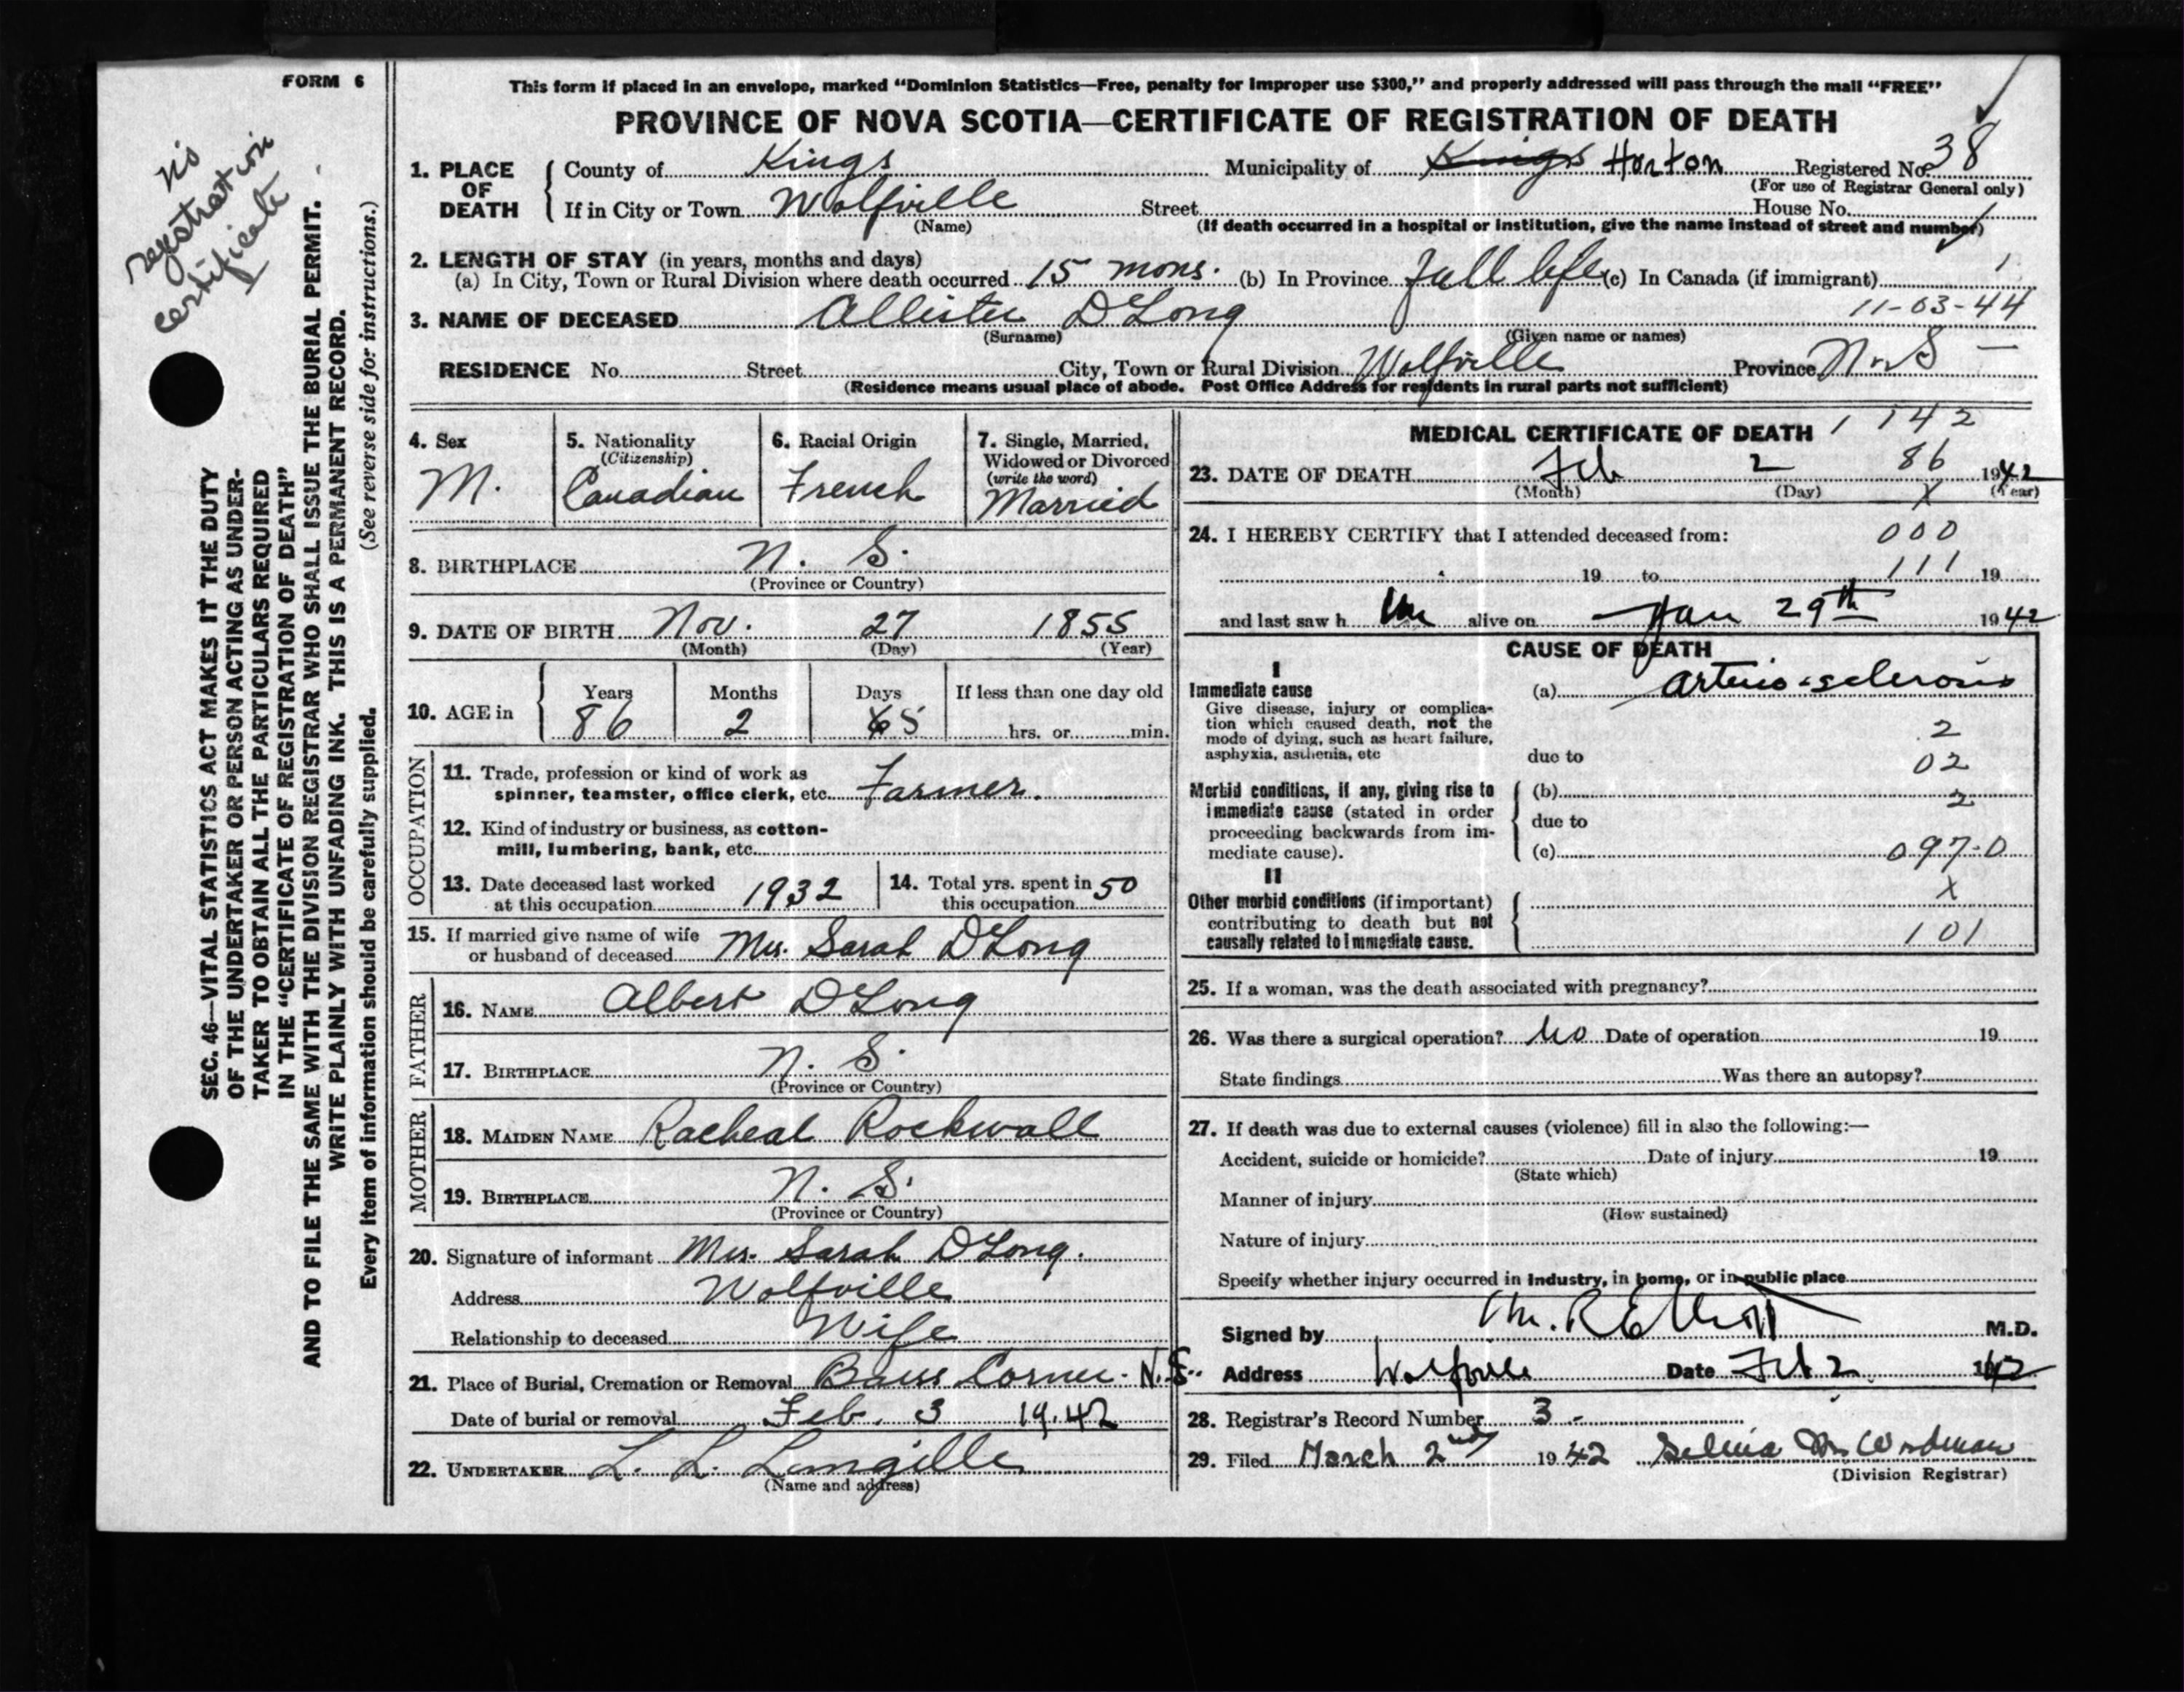 FORM 6
no registration certificate
SEC. 46—VITAL STATISTICS ACT MAKES IT THE DUTY
OF THE UNDERTAKER OR PERSON ACTING AS UNDER-
TAKER TO OBTAIN ALL THE PARTICULARS REQUIRED
IN THE "CERTIFICATE OF REGISTRATION OF DEATH"
AND TO FILE THE SAME WITH THE DIVISION REGISTRAR WHO SHALL ISSUE THE BURIAL PERMIT.
WRITE PLAINLY WITH UNFADING INK. THIS IS A PERMANENT RECORD.
Every item of information should be carefully supplied. (See reverse side for instructions.)
This form if placed in an envelope, marked "Dominion Statistics—Free, penalty for improper use $300," and properly addressed will pass through the mail "FREE"
PROVINCE OF NOVA SCOTIA—CERTIFICATE OF REGISTRATION OF DEATH
1. PLACE OF DEATH County of Kings Municipality of Kings Horton Registered No. 38
(For use of Registrar General only)
If in City or Town Wolfville Street House No.
(Name) (If death occurred in a hospital or institution, give the name instead of street and number)
2. LENGTH OF STAY (in years, months and days)
(a) In City, Town or Rural Division where death occurred 15 mons. (b) In Province full life (c) In Canada (if immigrant)
11-03-44
3. NAME OF DECEASED Allister D'Long
(Surname) (Given name or names)
RESIDENCE No. Street City, Town or Rural Division Wolfville Province N.S —
(Residence means usual place of abode. Post Office Address for residents in rural parts not sufficient)
4. Sex M.
5. Nationality (Citizenship) Canadian
6. Racial Origin French
7. Single, Married, Widowed or Divorced (write the word) Married
8. BIRTHPLACE N. S.
(Province or Country)
9. DATE OF BIRTH Nov. 27 1855
(Month) (Day) (Year)
10. AGE in Years 86 Months 2 Days 5 If less than one day old
hrs. or min.
OCCUPATION
11. Trade, profession or kind of work as
spinner, teamster, office clerk, etc. Farmer.
12. Kind of industry or business, as cotton-
mill, lumbering, bank, etc.
13. Date deceased last worked at this occupation 1932
14. Total yrs. spent in this occupation 50
15. If married give name of wife
or husband of deceased Mrs. Sarah D'Long
FATHER
16. NAME Albert D'Long
17. BIRTHPLACE N. S.
(Province or Country)
MOTHER
18. MAIDEN NAME Racheal Rockwall
19. BIRTHPLACE N. S.
(Province or Country)
20. Signature of informant Mrs. Sarah D'Long.
Address Wolfville
Relationship to deceased Wife
21. Place of Burial, Cremation or Removal Corner. N.S.
Date of burial or removal Feb. 3 1942
22. UNDERTAKER L. L. Langille
(Name and address)
MEDICAL CERTIFICATE OF DEATH 1 142
23. DATE OF DEATH Feb 2 86 1942
(Month) (Day) X (Year)
24. I HEREBY CERTIFY that I attended deceased from: 000
19 to 111 19
and last saw h im alive on Jan 29th 1942
CAUSE OF DEATH
I
Immediate cause (a) Arterio-sclerosis
Give disease, injury or complica-
tion which caused death, not the
mode of dying, such as heart failure,
asphyxia, asthenia, etc
2
due to 02
Morbid conditions, if any, giving rise to
immediate cause (stated in order
proceeding backwards from im-
mediate cause).
(b) 2
due to
(c) 097-0
II
X
Other morbid conditions (if important)
contributing to death but not
causally related to immediate cause.
101
25. If a woman, was the death associated with pregnancy?
26. Was there a surgical operation? No Date of operation 19
State findings Was there an autopsy?
27. If death was due to external causes (violence) fill in also the following:—
Accident, suicide or homicide? Date of injury 19
(State which)
Manner of injury
(How sustained)
Nature of injury
Specify whether injury occurred in industry, in home, or in public place
Signed by M. R Elliott M.D.
Address Wolfville Date Feb 2 1942
28. Registrar's Record Number 3 -
29. Filed March 2nd 1942 Selina Woodman
(Division Registrar)